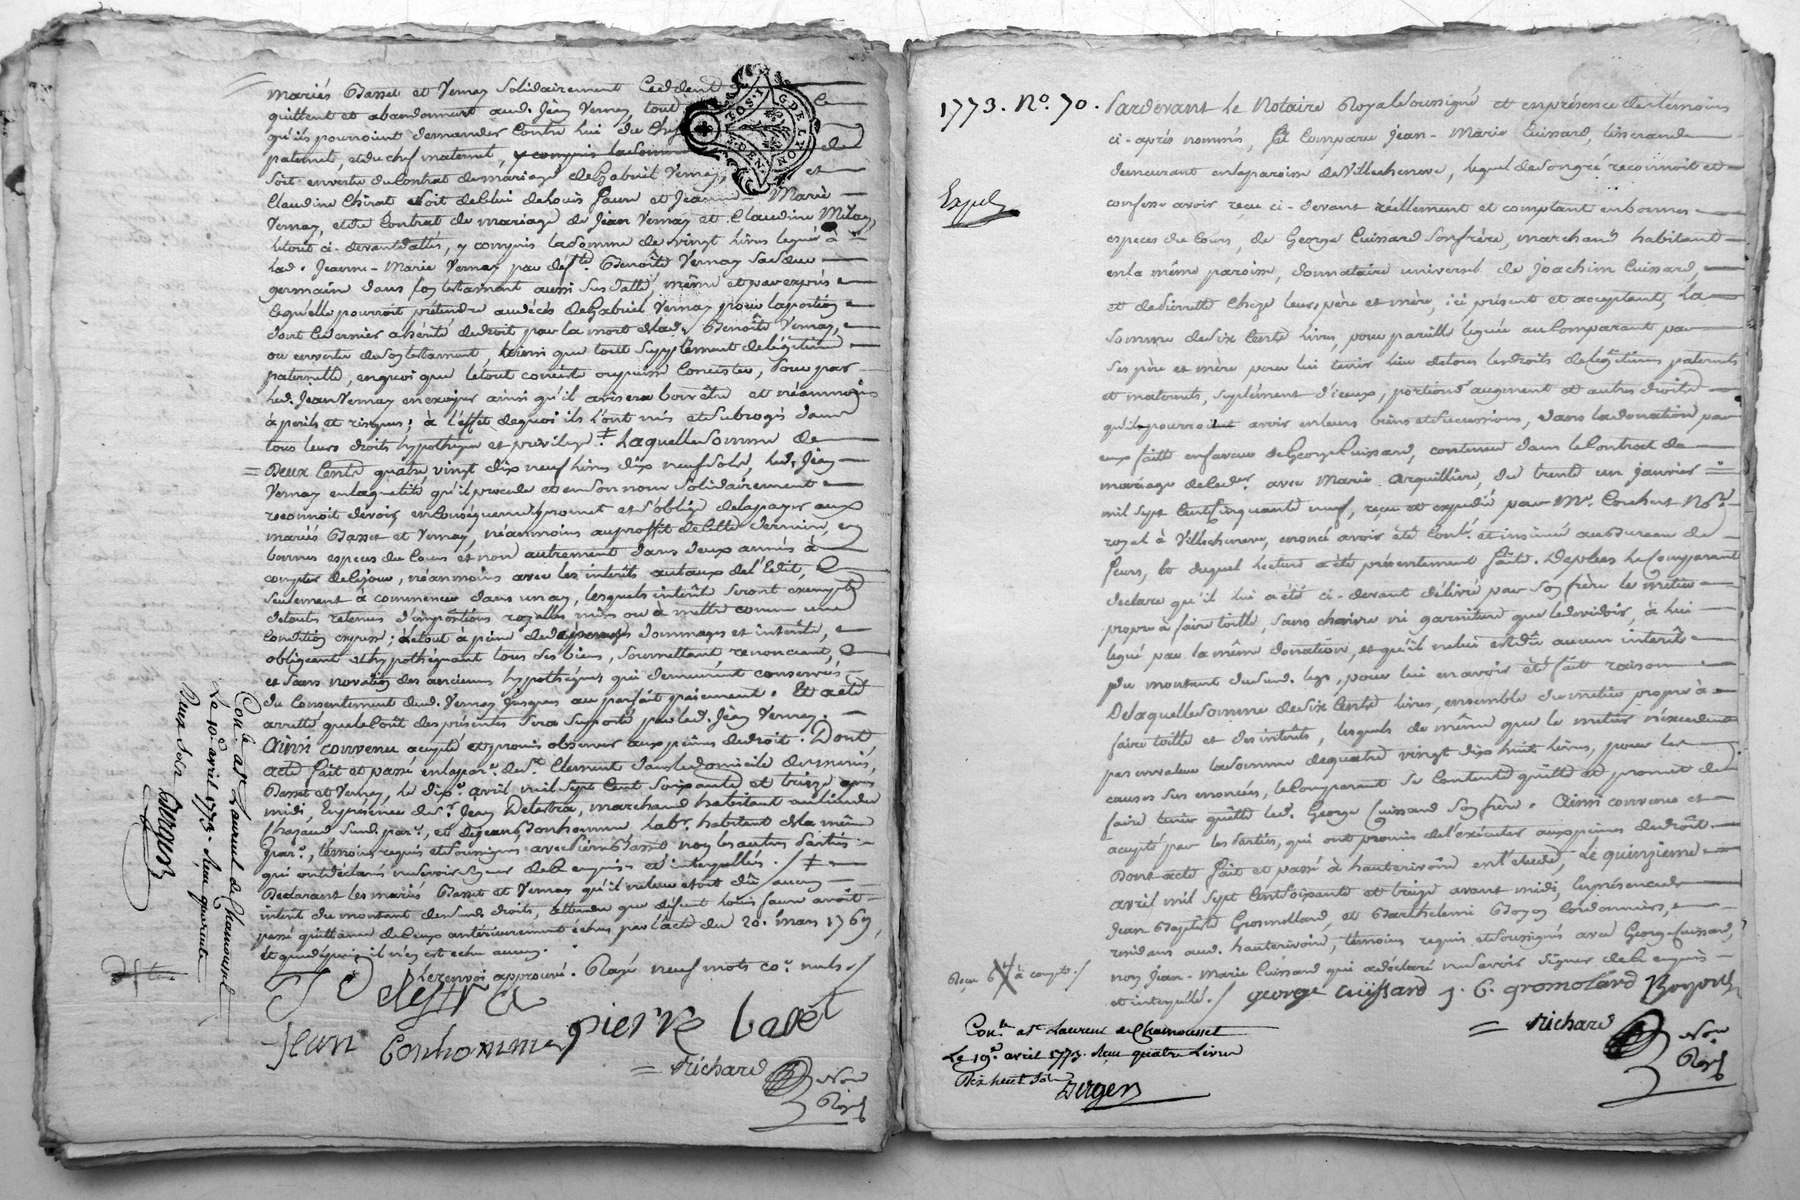 mariés Basset et Vernay solidairement Ceddent
quittent et abandonnent aud. Jean Vernay, tout ce
qu'ils pourroient demander contre lui du Chef
paternel, et du chef maternel, y compris la somme de
soit en vertu du Contrat de mariage de Gabriel Vernay, et
Claudine Chirat soit de celui de Louis Faure et Jeanne-Marie
Vernay, et le Contrat de mariage de Jean Vernay et Claudine
le tout ci-devant dattés, y compris la somme de vingt livres legué à
lad. Jeanne-Marie Vernay par def.te Benoîte Vernay sa sœur
germaine dans son testament aussi sus datté, même et par exprès
ce qu'elle pourroit prétendre au décès de Gabriel Vernay pour la portion
dont ce dernier a hérité de droit par la mort de lad. Benoîte Vernay,
ou en vertu de son testament, ainsi que tout supplément de légitime
paternelle, en quoi que le tout consiste ou puisse Consister, Pour par
led. Jean Vernay en exiger ainsi qu'il avisera bon être et néanmoins
à perils et risques; à l'effet de quoi ils l'ont mis et subrogé dans
tous leurs droits hypotheque et privilege. Laquelle somme de
Deux Cents quatre vingt dix neuf livres dix neuf sols, led. Jean
Vernay en la qualité qu'il procede et en son nom solidairement
reconnoit devoir en conséquence promet et s'oblige de la payer aux
mariés Basset et Vernay, néanmoins au proffit de cette derniere, en
bonnes especes du Cours et non autrement dans deux années à
compter de ce jour, néanmoins avec les interêts au taux de l'Edit,
seulement à commencer dans un an, lesquels interêts seront exempts
de toutes retenues d'impositions royalles mises ou à mettre comme une
condition expresse; à peine de dommages et interêts,
obligeant et hypothéquant tous ses biens, soumettant, renonceant,
et sans novation des anciennes hypothéques qui demeurent conservées
du Consentement dud. Vernay jusques au parfait paiement. Et a été
arretté que le Coût des présentes sera supporté par led. Jean Vernay.
Ainsi convenu accepté et promis observer aux peines de droit. Dont
acte fait et passé en la par.se de St. Clement dans le domicile des mariés,
Basset et Vernay, le dix.e avril mil sept Cent soixante et treize après
midi, En présence de Sr. Jean Delestra, marchand habitant au lieu de
Chazaud susd. par.se, et de Jean Bonhomme Lab.r habitant de la même
par.se, témoins requis et soussignés avec Pierre Basset non les autres Parties
qui ont déclaré ne savoir signer de ce enquis et interpellés. /
Declarant les mariés Basset et Vernay qu'il ne leur etoit dû aucun
interet du montant des susd. droits, attendu que défunt Louis Faure avoit
passé quittance de ceux antérieurement échus par l'acte du 20. mars 1769,
et que depuis il n'en est echu aucun.
Le renvoi approuvé. Rayé neuf mots co.e nuls. /
J D elestra
Jean Bonhomme pierre basset
= Richard Nre
Royal
Con.lé a St. Laurent de Chamousset
Le 10.e avril 1773. Reçu quarante
Deux Sols Bergeon
1773. No. 70.
Expd.
Pardevant Le Notaire Royal soussigné et en présence des témoins
ci-après nommés, fut Comparu Jean-Marie Cuissard, tisserand
demeurant en la paroisse de Villecheneve, lequel de son gré reconnoit et
confesse avoir reçu ci-devant réellement et comptant en bonnes
especes du Cours, de George Cuissard son frère, marchand habitant
en la même paroisse, donnataire universel de Joachim Cuissard,
et de Pierrette Cheze leurs père et mère, ici présent et acceptant, La
somme de six Cents livres, pour pareille leguée au Comparant par
ses père et mère, pour lui tenir lieu de tous les droits de légitimes paternels
et maternels, suplément d'iceux, portions d'augment et autres droits
qu'il pourroit avoir en leurs biens et successions, dans la donation par
eux faitte en faveur de George Cuissard, contenue dans le Contrat de
mariage de ce der. avec Marie Arquilliere, du trente un janvier
mil sept Cent Cinquante neuf, reçu et expedié par Me. Couchert No.re
royal à Villecheneve, enoncé avoir été Conl.é et insinué au Bureau de
feurs, Et duquel lecture a été présentement faite. De plus le Comparant
declare qu'il lui a été ci-devant délivré par son frère le métier
propre à faire toille, sans chaine ni garniture que le devidoir, à lui
legué par la même donation, et qu'il ne lui est dû aucun interêt
du montant du susd. legs, pour lui en avoir été fait raison
De laquelle somme de six Cents livres, ensemble du metier propre à
faire toille et des interêts, lesquels de même que le metier n'excedent
pas en valeur la somme de quatre vingt dix huit livres, pour les
causes sus enoncées, le Comparant se Contente quitte et promet de
faire tenir quitte led. George Cuissard son frère. Ainsi convenu et
accepté par les Parties, qui ont promis de l'exécuter aux peines de droit
Dont acte fait et passé à hauterivoire en l'etude, Le quinzieme
avril mil sept Cent soixante et treize avant midi, En présence de
Jean Baptiste Gromollard, et Barthelemi Boyon Cordonniers,
residans aud. hauterivoire, témoins requis et soussignés avec George Cuissard,
non Jean-Marie Cuissard qui a déclaré ne savoir signer de ce enquis
et interpellé. / george cuissard j. B. gromolard Boyon
Reçu à compte /
= Richard Nre
Royal
Con.lé a St. Laurent de Chamousset
Le 19.e avril 1773. Reçu quatre Livres
Dix huit Sols
Bergeon